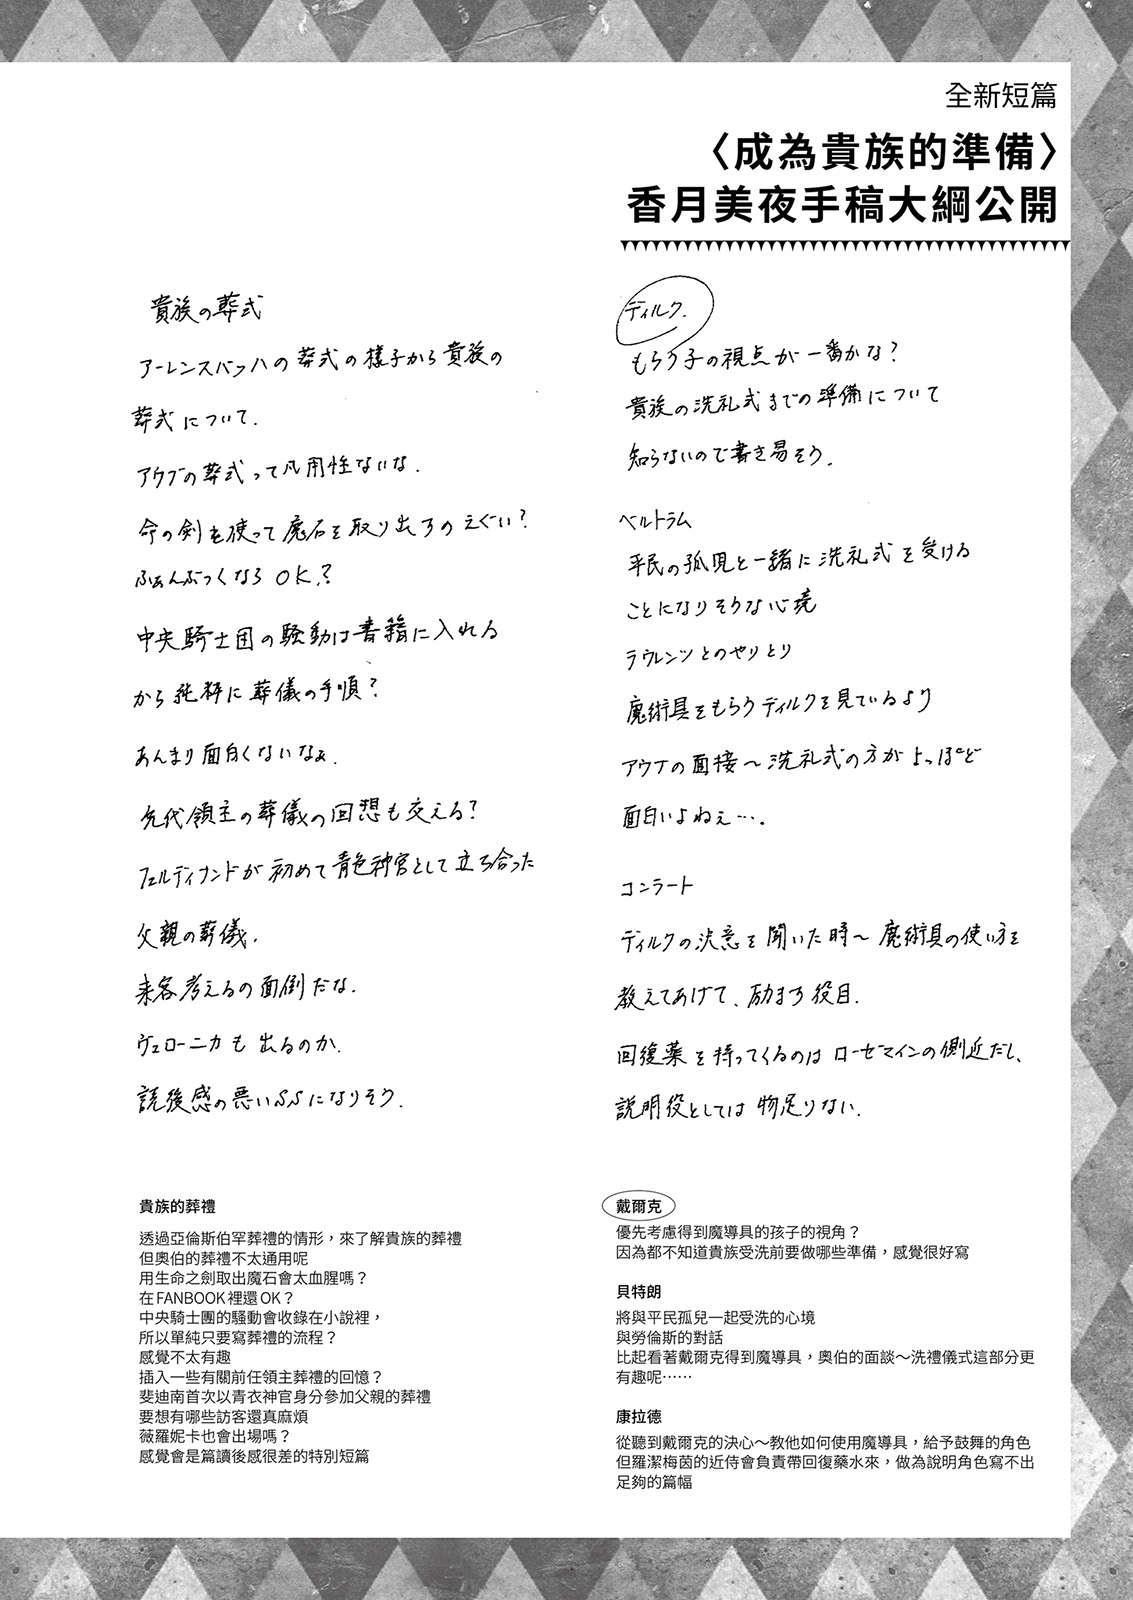 全新短篇
〈成為貴族的準備〉
香月美夜手稿大綱公開
貴族の葬式
アーレンスバッハの葬式の様子から貴族の
葬式について.
アウブの葬式って汎用性ないな.
命の剣を使って魔石を取り出すのえぐい?
ふぁんぶっくならOK.?
中央騎士団の騒動は書籍に入れる
から純粋に葬儀の手順?
あんまり面白くないなぁ.
先代領主の葬儀の回想も交える?
フェルディナンドが初めて青色神官として立ち合った
父親の葬儀.
来客考えるの面倒だな.
ヴェローニカも出るのか.
読後感の悪いSSになりそう.
ディルク.
もらう子の視点が一番かな?
貴族の洗礼式までの準備について
知らないので書き易そう.
ベルトラム
平民の孤児と一緒に洗礼式を受ける
ことになりそうな心境
ラウレンツとのやりとり
魔術具をもらうディルクを見ているより
アウブの面接～洗礼式の方がよっぽど
面白いよねぇ….
コンラート
ディルクの決意を聞いた時～魔術具の使い方を
教えてあげて、励ます役目.
回復薬を持ってくるのはローゼマインの側近だし、
説明役としては物足りない.
貴族的葬禮
透過亞倫斯伯罕葬禮的情形，來了解貴族的葬禮
但奧伯的葬禮不太通用呢
用生命之劍取出魔石會太血腥嗎？
在FANBOOK裡還OK？
中央騎士團的騷動會收錄在小說裡，
所以單純只要寫葬禮的流程？
感覺不太有趣
插入一些有關前任領主葬禮的回憶？
斐迪南首次以青衣神官身分參加父親的葬禮
要想有哪些訪客還真麻煩
薇羅妮卡也會出場嗎？
感覺會是篇讀後感很差的特別短篇
戴爾克
優先考慮得到魔導具的孩子的視角？
因為都不知道貴族受洗前要做哪些準備，感覺很好寫
貝特朗
將與平民孤兒一起受洗的心境
與勞倫斯的對話
比起看著戴爾克得到魔導具，奧伯的面談～洗禮儀式這部分更
有趣呢……
康拉德
從聽到戴爾克的決心～教他如何使用魔導具，給予鼓舞的角色
但羅潔梅茵的近侍會負責帶回復藥水來，做為說明角色寫不出
足夠的篇幅